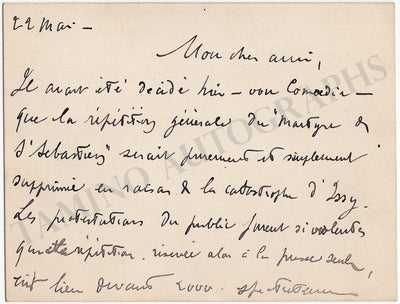 22 Mai –
Mon cher ami,
Il avait été décidé hier – voir Comoedia –
que la répétition générale du "Martyre de
St Sébastien" serait purement et simplement
supprimée en raison de la catastrophe d'Issy.
Les protestations du public furent si violentes
que cette répétition, réservée alors à la presse seule,
eut lieu devant 2000 spectateurs
TAMINO AUTOGRAPHS